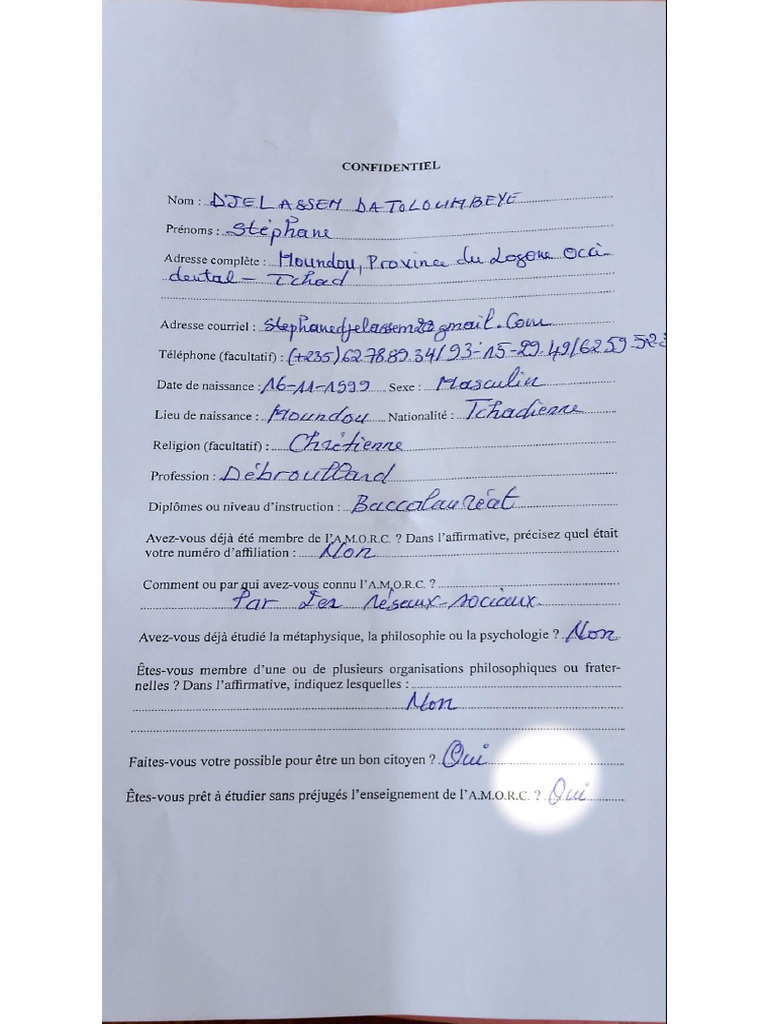 CONFIDENTIEL
Nom : DJELASSEM DATOLOUMBEYE
Prénoms : Stéphane
Adresse complète : Moundou, Province du Logone Occi-
dental - Tchad
Adresse courriel : stephanedjelassem22gmail.Com
Téléphone (facultatif) : (+235) 62 78.89.34/ 93-15-29.49/62 59 52
Date de naissance : 16-11-1999 Sexe : Masculin
Lieu de naissance : Moundou Nationalité : Tchadienne
Religion (facultatif) : Chrétienne
Profession : Débrouillard
Diplômes ou niveau d'instruction : Baccalauréat
Avez-vous déjà été membre de l'A.M.O.R.C. ? Dans l'affirmative, précisez quel était
votre numéro d'affiliation : Non
Comment ou par qui avez-vous connu l'A.M.O.R.C. ?
Par Les réseaux-sociaux.
Avez-vous déjà étudié la métaphysique, la philosophie ou la psychologie ? Non
Êtes-vous membre d'une ou de plusieurs organisations philosophiques ou frater-
nelles ? Dans l'affirmative, indiquez lesquelles :
Non
Faites-vous votre possible pour être un bon citoyen ? Oui
Êtes-vous prêt à étudier sans préjugés l'enseignement de l'A.M.O.R.C. ? Oui